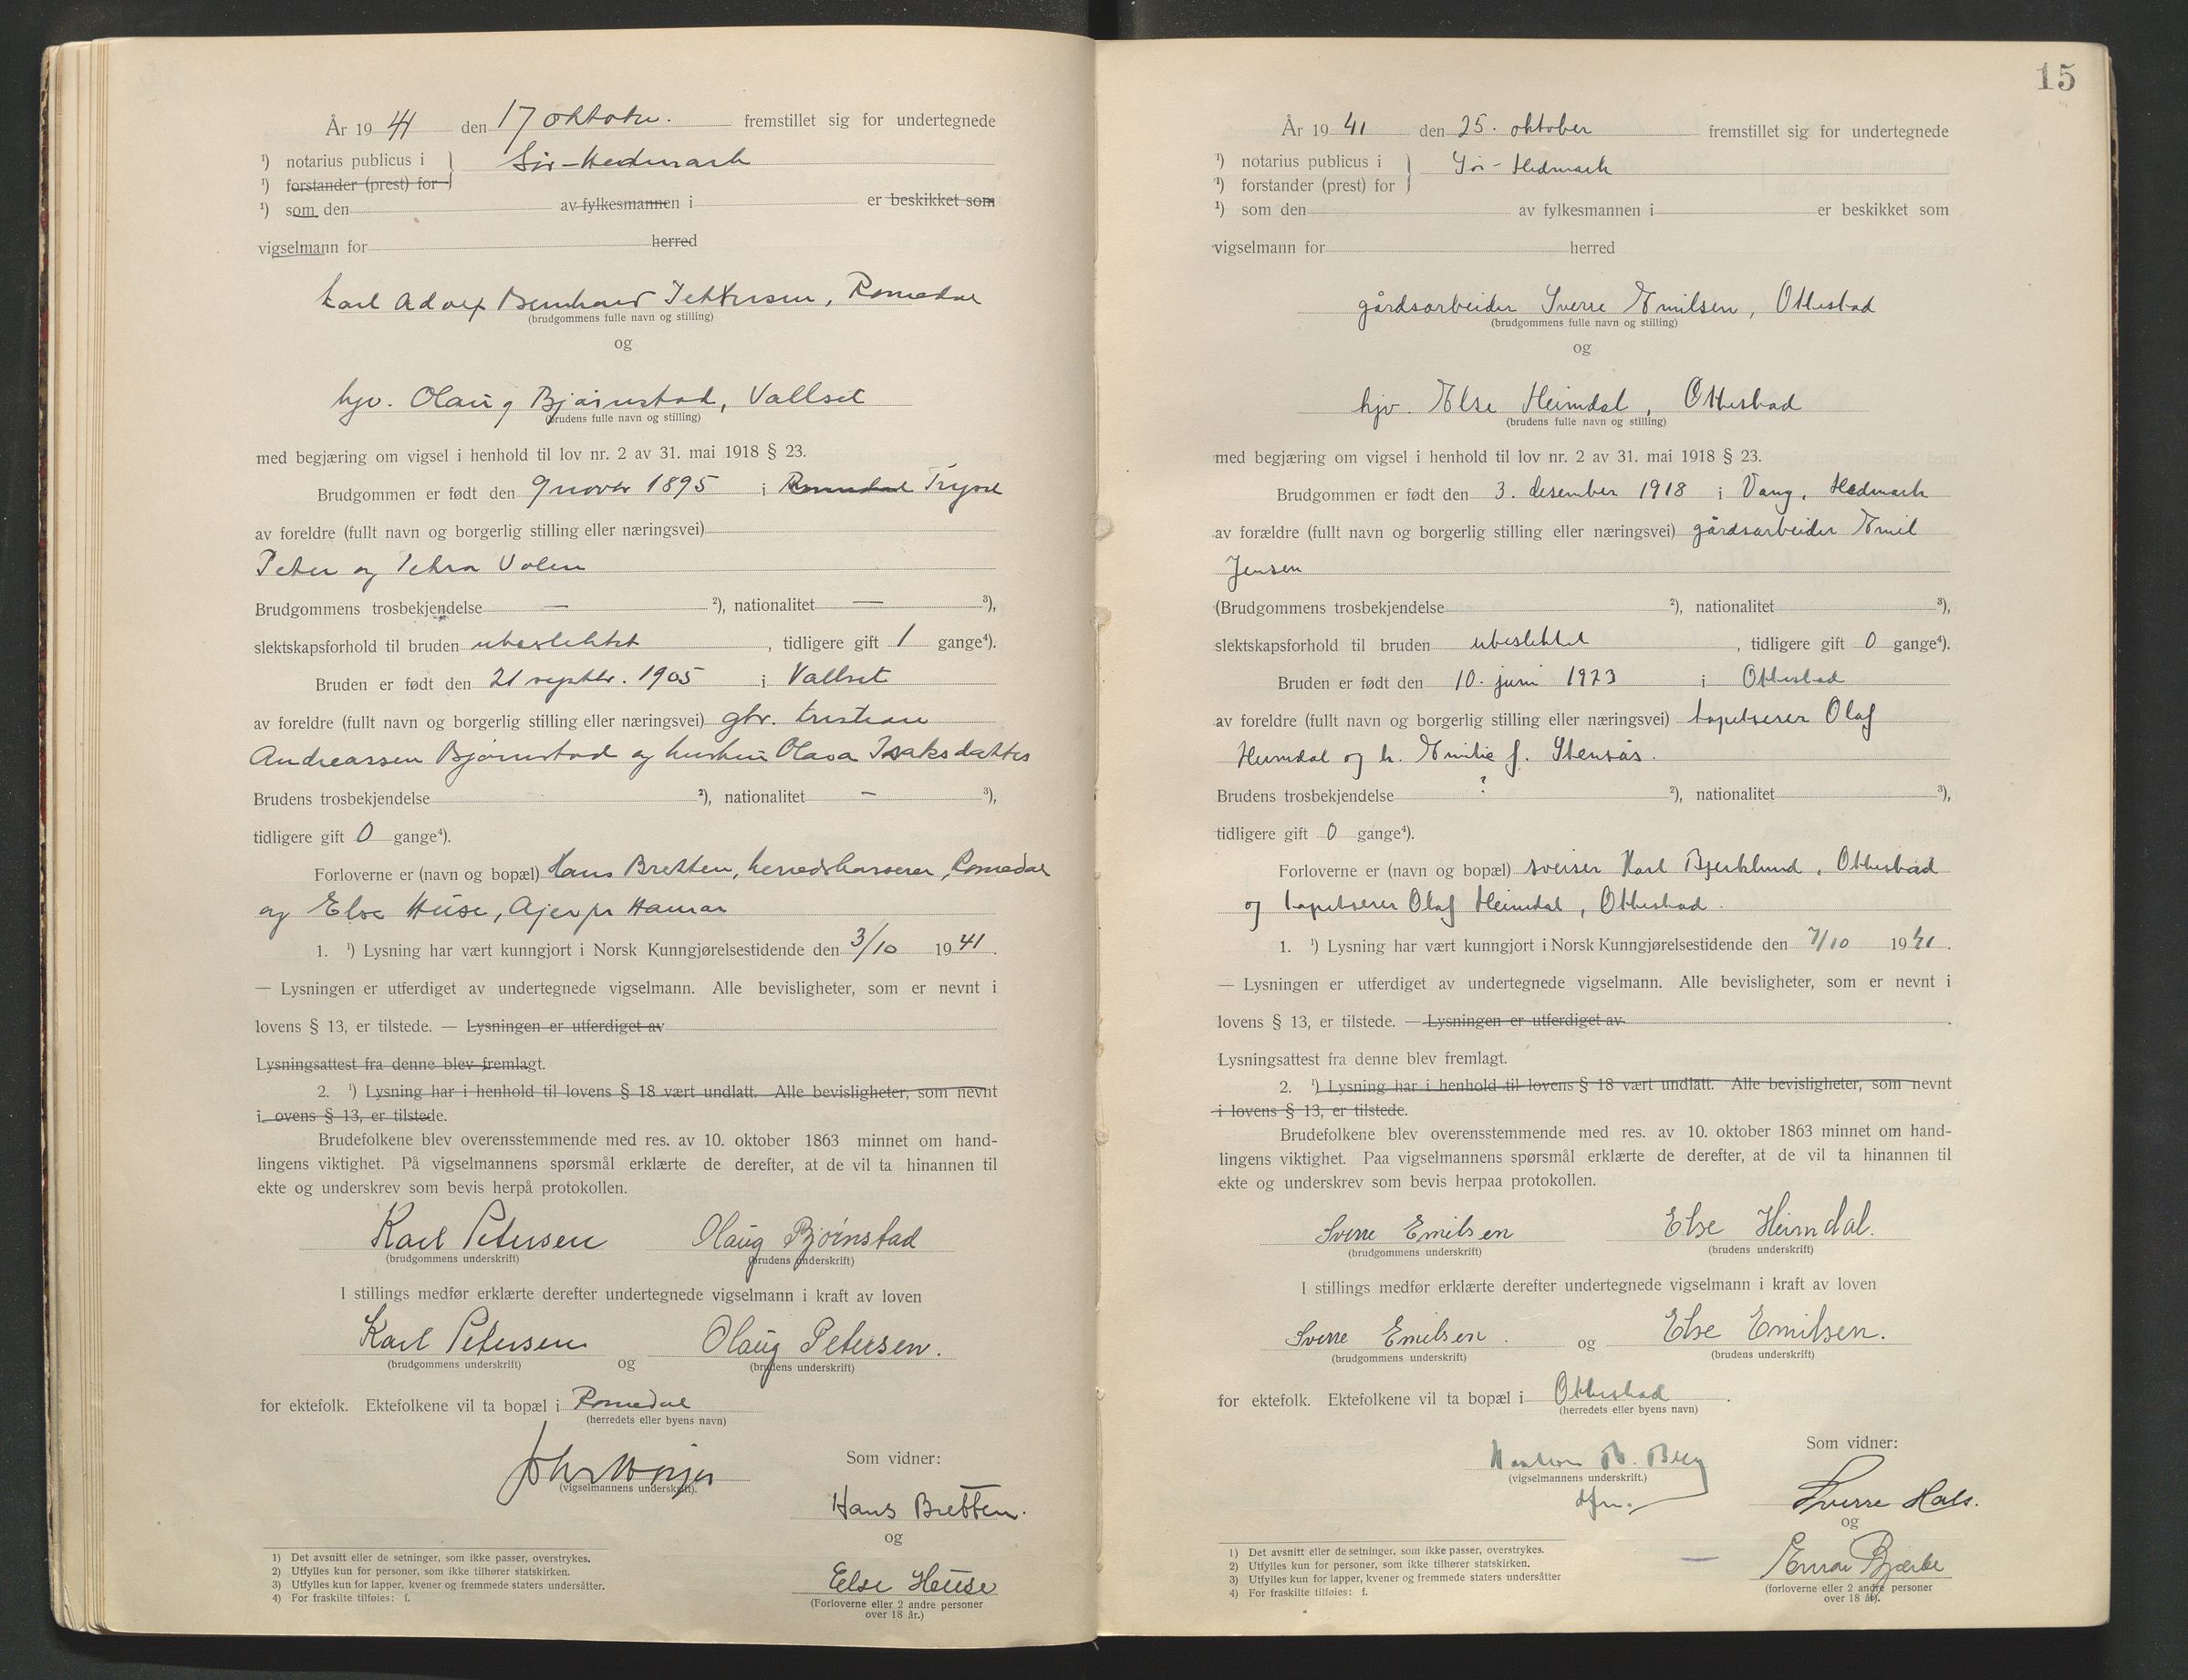 År 19 41 den 17 oktober. fremstillet sig for undertegnede
¹) notarius publicus i } Sør-Hedmark
¹) forstander (prest) for
¹) som den av fylkesmannen i er beskikket som
vigselmann for herred
Karl Adolf Bernhard Pettersen, Romedal
(brudgommens fulle navn og stilling)
og
hjv. Olaug Bjørnstad, Vallset
(brudens fulle navn og stilling)
med begjæring om vigsel i henhold til lov nr. 2 av 31. mai 1918 § 23.
Brudgommen er født den 9 novbr 1895 i Romedal Trysil
av foreldre (fullt navn og borgerlig stilling eller næringsvei)
Peter og Petra Volen
Brudgommens trosbekjendelse — ²), nationalitet — ³),
slektskapsforhold til bruden ubeslektet , tidligere gift 1 gange⁴).
Bruden er født den 21 septbr. 1905 i Vallset
av foreldre (fullt navn og borgerlig stilling eller næringsvei) gbr. Kristian
Andreassen Bjørnstad og hustru Olava Isaksdatter
Brudens trosbekjendelse ²), nationalitet — ³),
tidligere gift 0 gange⁴).
Forloverne er (navn og bopæl) Hans Bretten, herredskasserer, Romedal
og Else Huse, Ajer pr Hamar
1. ¹) Lysning har vært kunngjort i Norsk Kunngjørelsestidende den 3/10 1941.
— Lysningen er utferdiget av undertegnede vigselmann. Alle bevisligheter, som er nevnt i
lovens § 13, er tilstede. — Lysningen er utferdiget av
Lysningsattest fra denne blev fremlagt.
2. ¹) Lysning har i henhold til lovens § 18 vært undlatt. Alle bevisligheter, som nevnt
i ovens § 13, er tilstede.
Brudefolkene blev overensstemmende med res. av 10. oktober 1863 minnet om hand-
lingens viktighet. På vigselmannens spørsmål erklærte de derefter, at de vil ta hinannen til
ekte og underskrev som bevis herpå protokollen.
Karl Petersen Olaug Bjørnstad
(brudgommens underskrift) (brudens underskrift)
I stillings medfør erklærte derefter undertegnede vigselmann i kraft av loven
Karl Petersen og Olaug Petersen.
(brudgommens underskrift) (brudens underskrift)
for ektefolk. Ektefolkene vil ta bopæl i Romedal
(herredets eller byens navn)
Som vidner:
(vigselmannens underskrift).
Hans Bretten.
og
Else Huse
(Forloverne eller 2 andre personer
over 18 år.)
1) Det avsnitt eller de setninger, som ikke passer, overstrykes.
2) Utfylles kun for personer, som ikke tilhører statskirken.
3) Utfylles kun for lapper, kvener og fremmede staters undersåtter.
4) For fraskilte tilføies: f.
15
År 19 41 den 25. oktober fremstillet sig for undertegnede
¹) notarius publicus i } Sør-Hedmark
¹) forstander (prest) for
¹) som den av fylkesmannen i er beskikket som
vigselmann for herred
gårdsarbeider Sverre Emilsen, Ottestad
(brudgommens fulle navn og stilling)
og
hjv. Else Heimdal, Ottestad
(brudens fulle navn og stilling)
med begjæring om vigsel i henhold til lov nr. 2 av 31. mai 1918 § 23.
Brudgommen er født den 3. desember 1918 i Vang, Hedmark
av forældre (fullt navn og borgerlig stilling eller næringsvei) gårdsarbeider Emil
Jensen
(Brudgommens trosbekjendelse ²), nationalitet ³),
slektskapsforhold til bruden ubeslektet , tidligere gift 0 gange⁴).
Bruden er født den 10. juni 1923 i Ottestad
av foreldre (fullt navn og borgerlig stilling eller næringsvei) tapetserer Olaf
Heimdal og h. Emilie f. Stensås.
Brudens trosbekjendelse ? ²), nationalitet ³),
tidligere gift 0 gange⁴).
Forloverne er (navn og bopæl) sveiser Karl Bjerklund, Ottestad
og tapetserer Olaf Heimdal, Ottestad.
1. ¹) Lysning har vært kunngjort i Norsk Kunngjørelsestidende den 7/10 1941.
— Lysningen er utferdiget av undertegnede vigselmann. Alle bevisligheter, som er nevnt i
lovens § 13, er tilstede. — Lysningen er utferdiget av
Lysningsattest fra denne blev fremlagt.
2. ¹) Lysning har i henhold til lovens § 18 vært undlatt. Alle bevisligheter, som nevnt
i lovens § 13, er tilstede.
Brudefolkene blev overensstemmende med res. av 10. oktober 1863 minnet om hand-
lingens viktighet. Paa vigselmannens spørsmål erklærte de derefter, at de vil ta hinannen til
ekte og underskrev som bevis herpaa protokollen.
Sverre Emilsen Else Heimdal.
(brudgommens underskrift) (brudens underskrift)
I stillings medfør erklærte derefter undertegnede vigselmann i kraft av loven
Sverre Emilsen. og Else Emilsen.
(brudgommens underskrift) (brudens underskrift)
for ektefolk. Ektefolkene vil ta bopæl i Ottestad.
(herredets eller byens navn)
Som vidner:
(vigselmannens underskrift.)
Sverre Hals.
og
Bjerke
(forloverne eller 2 andre personer
over 18 år).
1) Det avsnitt eller de setninger, som ikke passer, overstrykes.
2) Utfylles kun for personer, som ikke tilhører statskirken.
3) Utfylles kun for lapper, kvener og fremmede staters undersåtter
4) For fraskilte tilføies: f.